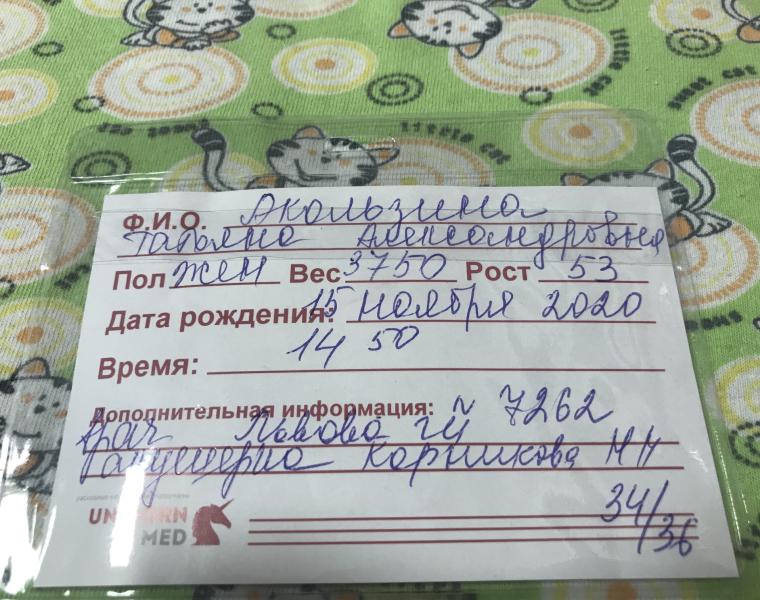 little cat
sweet cat
little cat
Ф.И.О. Акользина
Татьяна Александровна
Пол жен Вес 3750 Рост 53
Дата рождения: 15 ноября 2020
Время: 14 50
Дополнительная информация: № 7262
Врач
Акушерка Корникова НН
34/36
UNICORN
MED